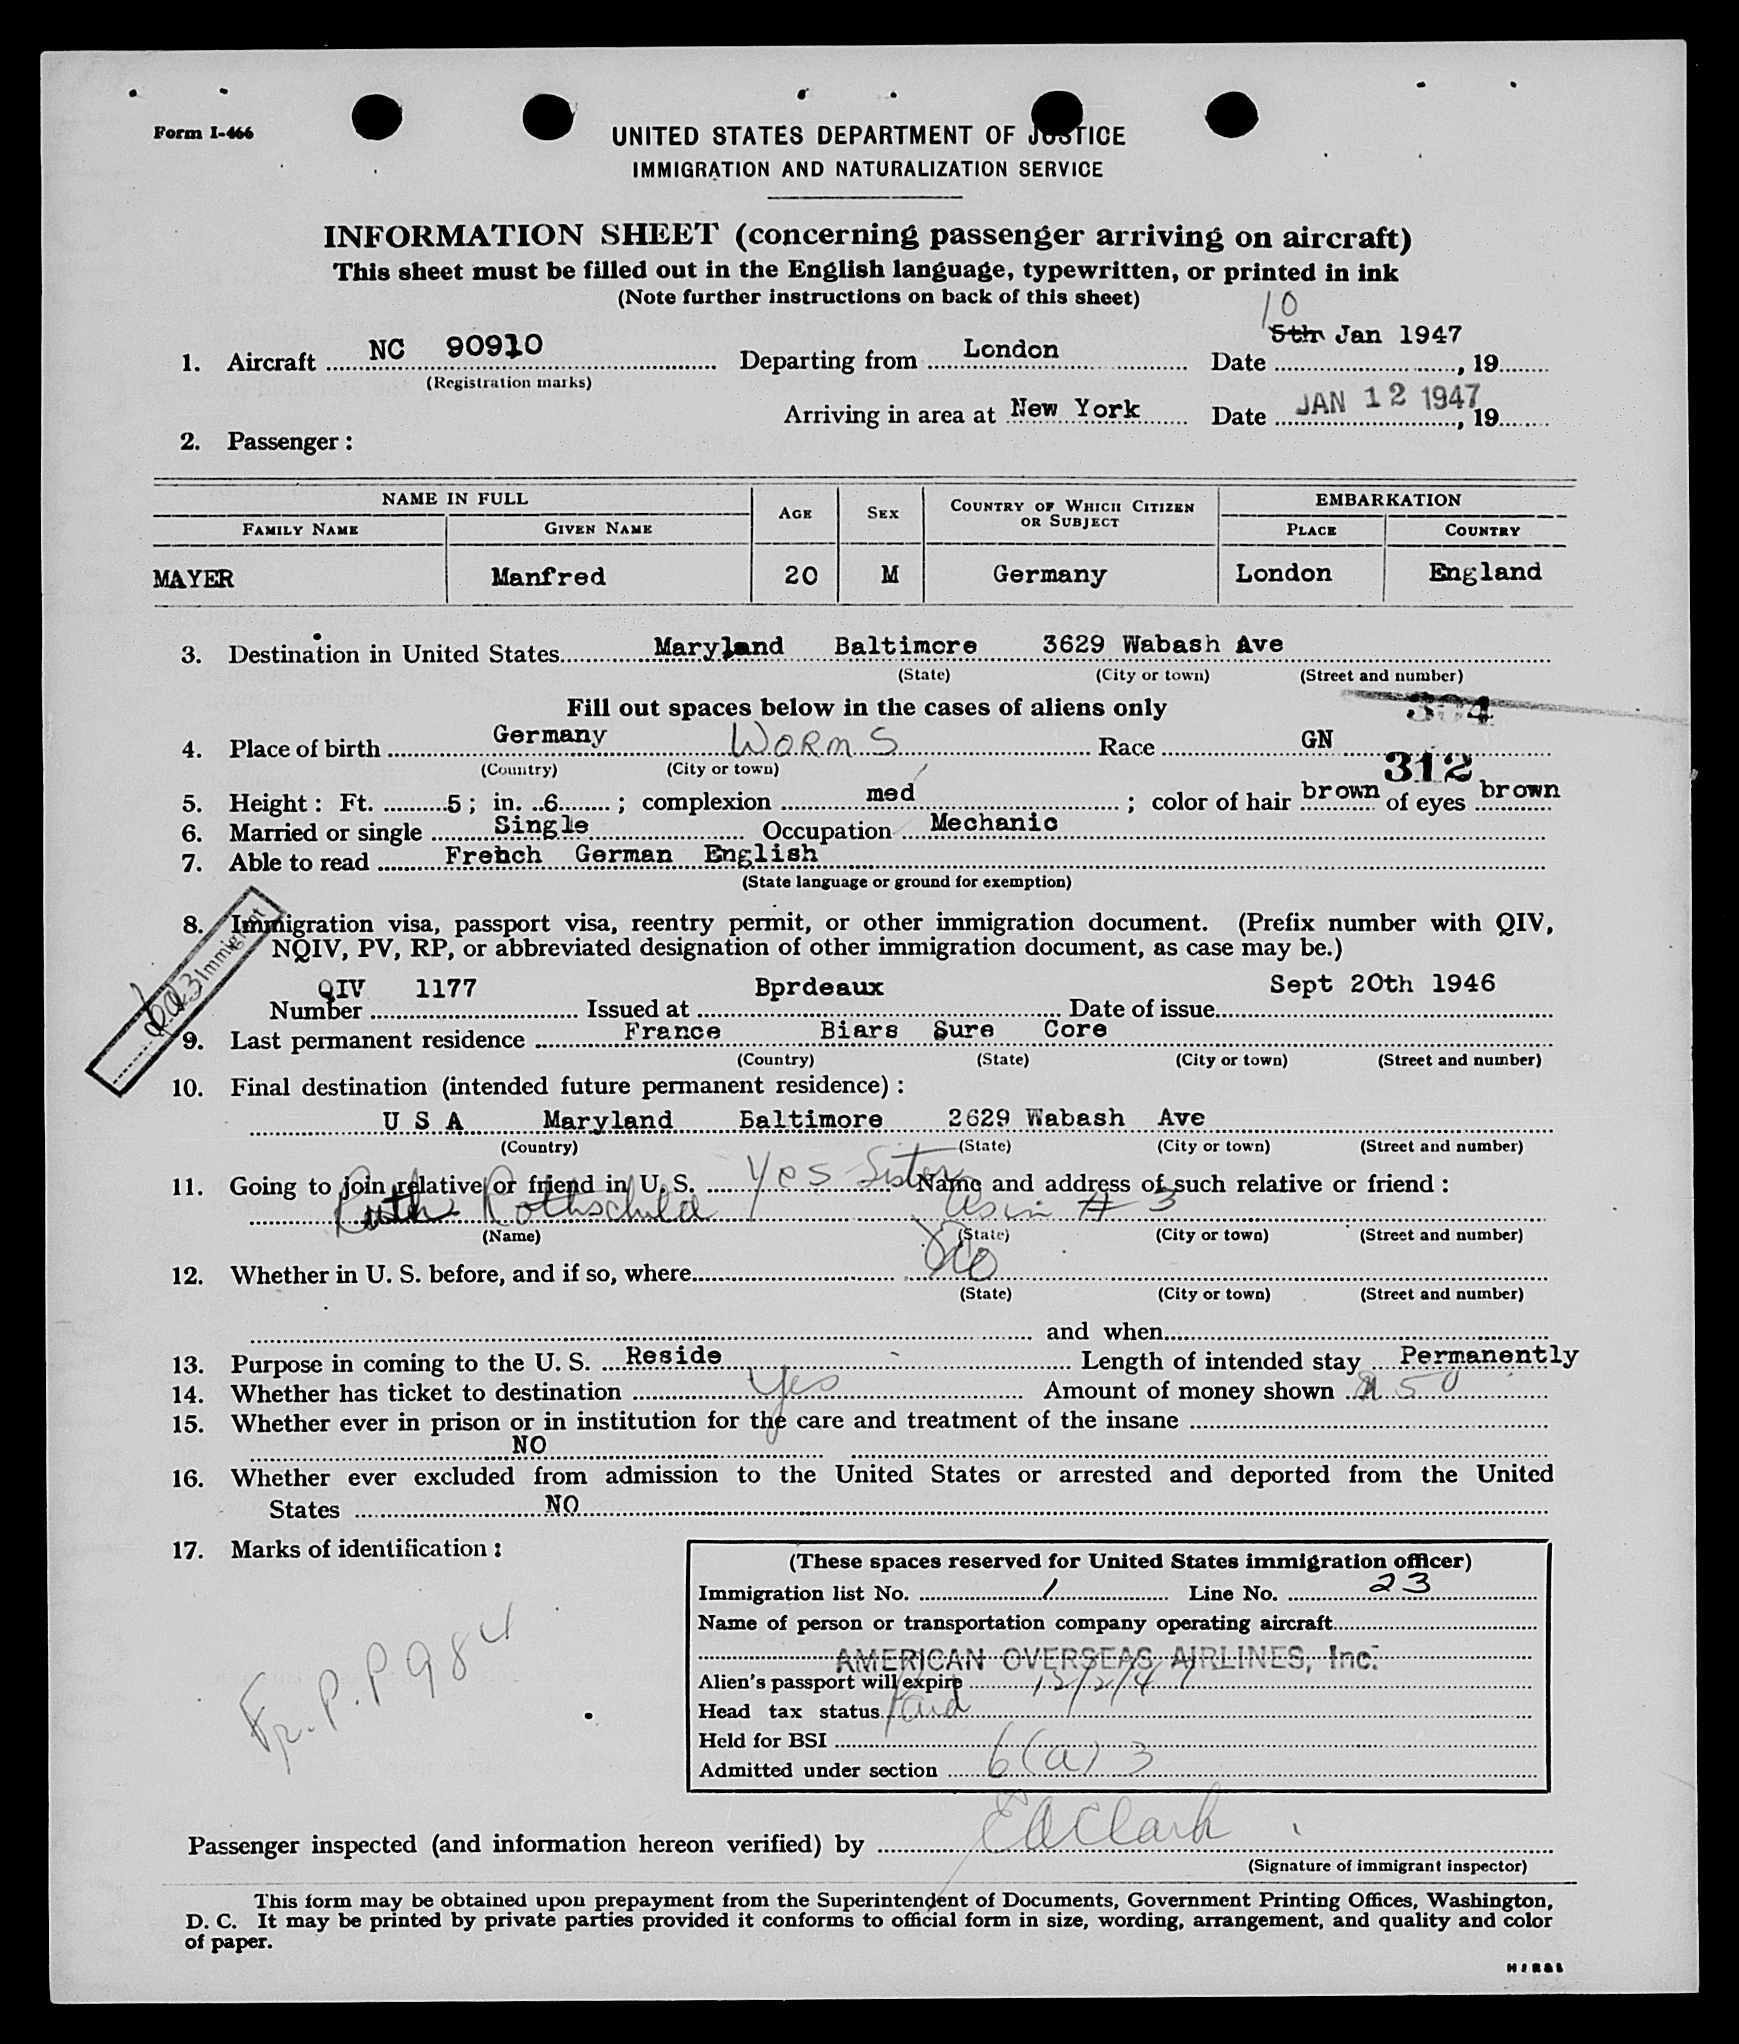 Form I-466
UNITED STATES DEPARTMENT OF JUSTICE
IMMIGRATION AND NATURALIZATION SERVICE
INFORMATION SHEET (concerning passenger arriving on aircraft)
This sheet must be filled out in the English language, typewritten, or printed in ink
(Note further instructions on back of this sheet)
10
1. Aircraft NC 90910 Departing from London Date 5th Jan 1947, 19
(Registration marks)
Arriving in area at New York Date JAN 12 1947, 19
2. Passenger:
NAME IN FULL AGE SEX COUNTRY OF WHICH CITIZEN OR SUBJECT EMBARKATION
FAMILY NAME GIVEN NAME PLACE COUNTRY
MAYER Manfred 20 M Germany London England
3. Destination in United States Maryland Baltimore 3629 Wabash Ave
(State) (City or town) (Street and number)
Fill out spaces below in the cases of aliens only 304
4. Place of birth Germany Worms Race GN
(Country) (City or town) 312
5. Height: Ft. 5; in. 6; complexion med; color of hair brown of eyes brown
6. Married or single Single Occupation Mechanic
7. Able to read French German English
(State language or ground for exemption)
8. Immigration visa, passport visa, reentry permit, or other immigration document. (Prefix number with QIV,
NQIV, PV, RP, or abbreviated designation of other immigration document, as case may be.)
Immigrant
Number QIV 1177 Issued at Bprdeaux Date of issue Sept 20th 1946
9. Last permanent residence France Biars Sure Core
(Country) (State) (City or town) (Street and number)
10. Final destination (intended future permanent residence):
U S A Maryland Baltimore 2629 Wabash Ave
(Country) (State) (City or town) (Street and number)
11. Going to join relative or friend in U. S. Yes Sister Name and address of such relative or friend:
Ruth Rothschild as in # 3
(Name) (State) (City or town) (Street and number)
12. Whether in U. S. before, and if so, where No
(State) (City or town) (Street and number)
and when
13. Purpose in coming to the U. S. Reside Length of intended stay Permanently
14. Whether has ticket to destination Yes Amount of money shown $ 50
15. Whether ever in prison or in institution for the care and treatment of the insane
NO
16. Whether ever excluded from admission to the United States or arrested and deported from the United
States NO
17. Marks of identification:
Fr. P.P 984
(These spaces reserved for United States immigration officer)
Immigration list No. 1 Line No. 23
Name of person or transportation company operating aircraft
AMERICAN OVERSEAS AIRLINES, Inc.
Alien's passport will expire 12/2/47
Head tax status Paid
Held for BSI
Admitted under section 6(a)3
Passenger inspected (and information hereon verified) by EAClark
(Signature of immigrant inspector)
This form may be obtained upon prepayment from the Superintendent of Documents, Government Printing Offices, Washington,
D. C. It may be printed by private parties provided it conforms to official form in size, wording, arrangement, and quality and color
of paper.